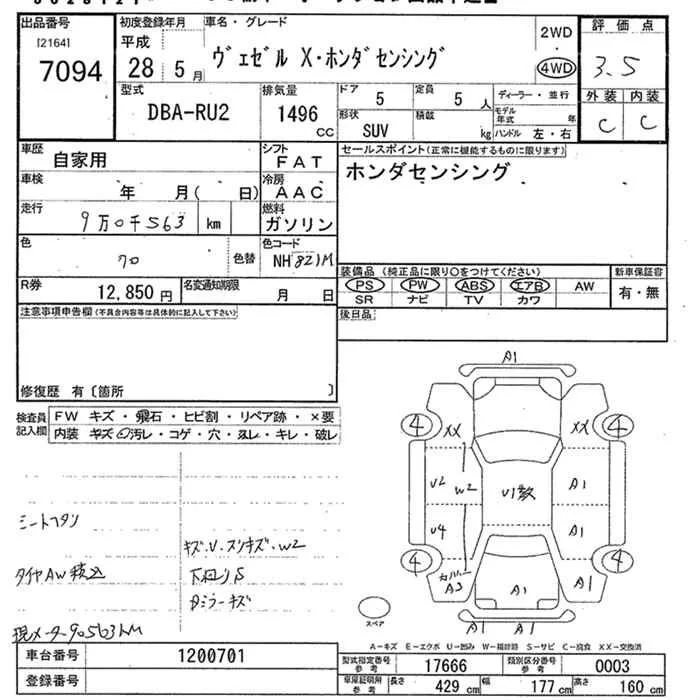 出品番号
[2164]
7094
初度登録年月
平成
28 5 月
車名・グレード
ヴェゼル X・ホンダセンシング
2WD
4WD
評価点
3.5
外装 内装
C C
型式
DBA-RU2
排気量
1496 cc
ドア 5
定員 5 人
形状 SUV
積載 kg
ディーラー・並行
モデル年式 年
ハンドル 左・右
車歴
自家用
シフト
FAT
車検
年 月( 日)
冷房
AAC
走行
9万0千563 km
燃料
ガソリン
色
クロ
色替
色コード
NH 821M
R券
12,850 円
名変通知期限
月 日
セールスポイント(正常に機能するものに限ります)
ホンダセンシング
装備品(純正品に限り○をつけてください)
PS PW ABS エアB AW
SR ナビ TV カワ
新車保証書
有・無
後日品
注意事項申告欄(不具合内容等は具体的に記入して下さい)
修復歴 有〔箇所 〕
検査員記入欄
FW キズ・飛石・ヒビ割・リペア跡・×要
内装 キズ・汚レ・コゲ・穴・スレ・キレ・破レ
シートヘタリ
キズ・U・スリキズ・W2
タイヤAW積込
下回りS
Dミラーキズ
現メーター90563km
A1
4 XX XX 4
U2 W2 U1数 A1
U4 A1
4 カバーA3 A1 A1 4
A1 A1 A1
スペア
A-キズ E-エクボ U-凹み W-補修跡 S-サビ C-腐食 XX-交換済
車台番号
1200701
登録番号
型式指定番号参考
17666
類別区分番号参考
0003
車庫証明用参考
長さ 429 cm
幅 177 cm
高さ 160 cm